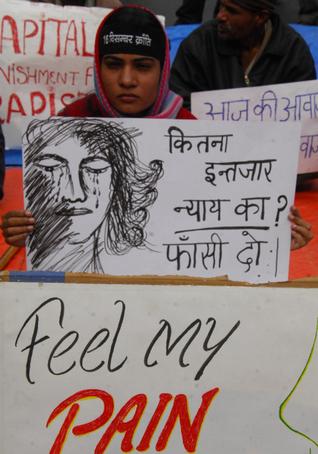 APITAL
NISHMENT F
RAPIST
16 दिसम्बर क्रांति
आज की आवा
कितना
इन्तजार
न्याय का?
फाँसी दो।
Feel My
PAIN